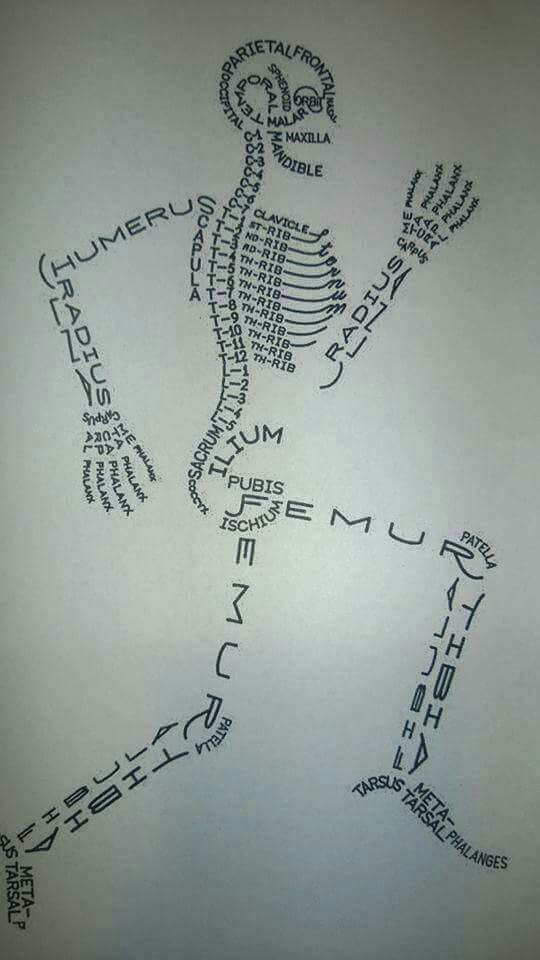 PARIETAL
FRONTAL
NASAL
OCCIPITAL
TEMPORAL
SPHENOID
ORBIT
MALAR
MAXILLA
MANDIBLE
C1
C2
C3
C4
C5
C6
C7
HUMERUS
SCAPULA
CLAVICLE
STERNUM
T-1 ST-RIB
T-2 ND-RIB
T-3 RD-RIB
T-4 TH-RIB
T-5 TH-RIB
T-6 TH-RIB
T-7 TH-RIB
T-8 TH-RIB
T-9 TH-RIB
T-10 TH-RIB
T-11 TH-RIB
T-12 TH-RIB
L-1
L-2
L-3
L-4
L-5
RADIUS
ULNA
CARPUS
META
CARPAL
PHALANX
PHALANX
PHALANX
PHALANX
PHALANX
RADIUS
ULNA
CARPUS
META
CARPAL
PHALANX
PHALANX
PHALANX
PHALANX
PHALANX
SACRUM
COCCYX
ILIUM
PUBIS
ISCHIUM
FEMUR
PATELLA
THIBIA
FIBULA
TARSUS
META-
TARSAL
PHALANGES
EMUR
PATELLA
THIBIA
FIBULA
SUS
META-
TARSAL
P